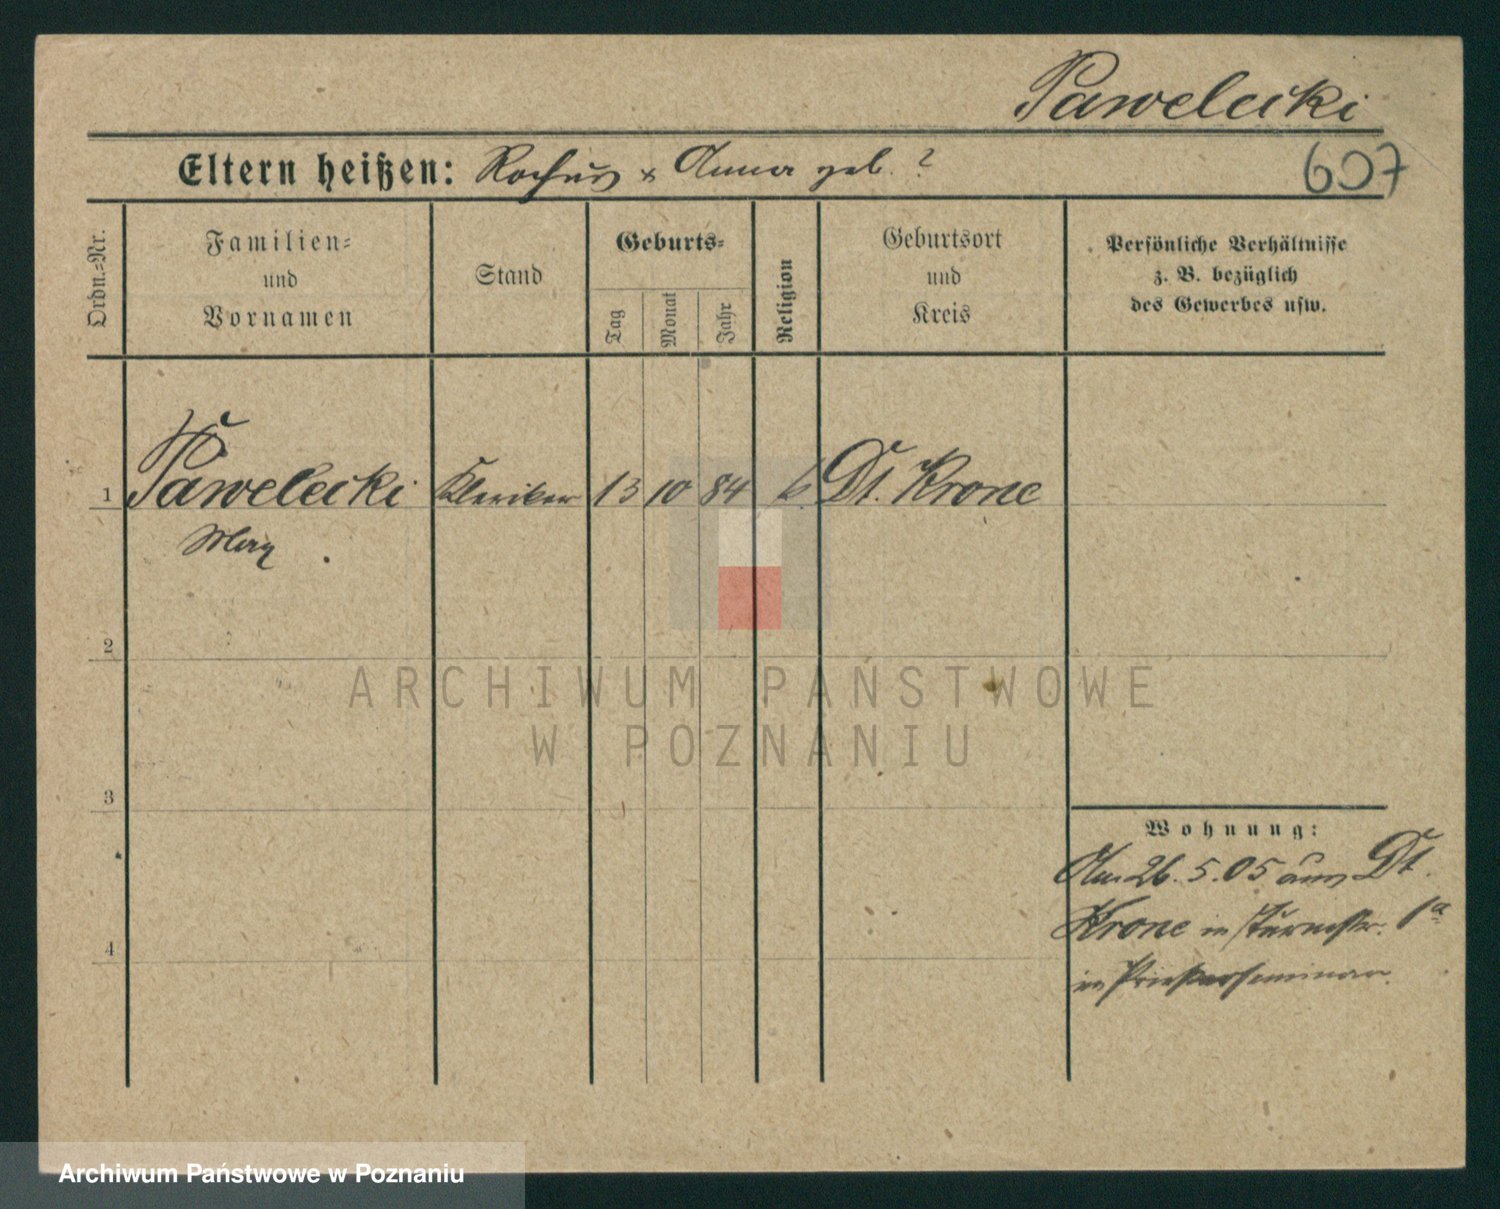 Pawelecki
Eltern heißen: Rochus & Anna geb. ?
607
Ordn.=Nr.
Familien=
und
Vornamen
Stand
Geburts=
Tag
Monat
Jahr
Religion
Geburtsort
und
Kreis
Persönliche Verhältnisse
z. B. bezüglich
des Gewerbes usw.
1 Pawelecki Kleriker 13 10 84 k Dt. Krone
Max
2
3
4
Wohnung:
Am 26. 5. 05 aus Dt.
Krone in Turmstr. 1a
im Priesterseminar.
ARCHIWUM PAŃSTWOWE
W POZNANIU
Archiwum Państwowe w Poznaniu